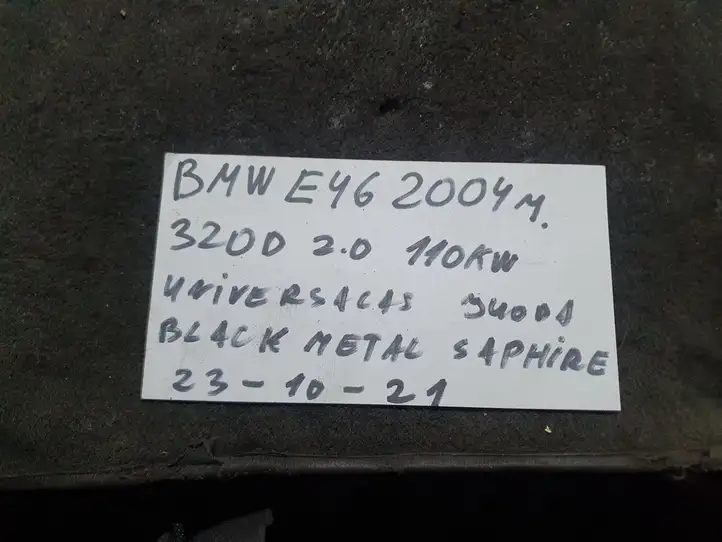 BMW E46 2004M.
320D 2.0 110KW
UNIVERSALAS JUODA
BLACK METAL SAPHIRE
23-10-21